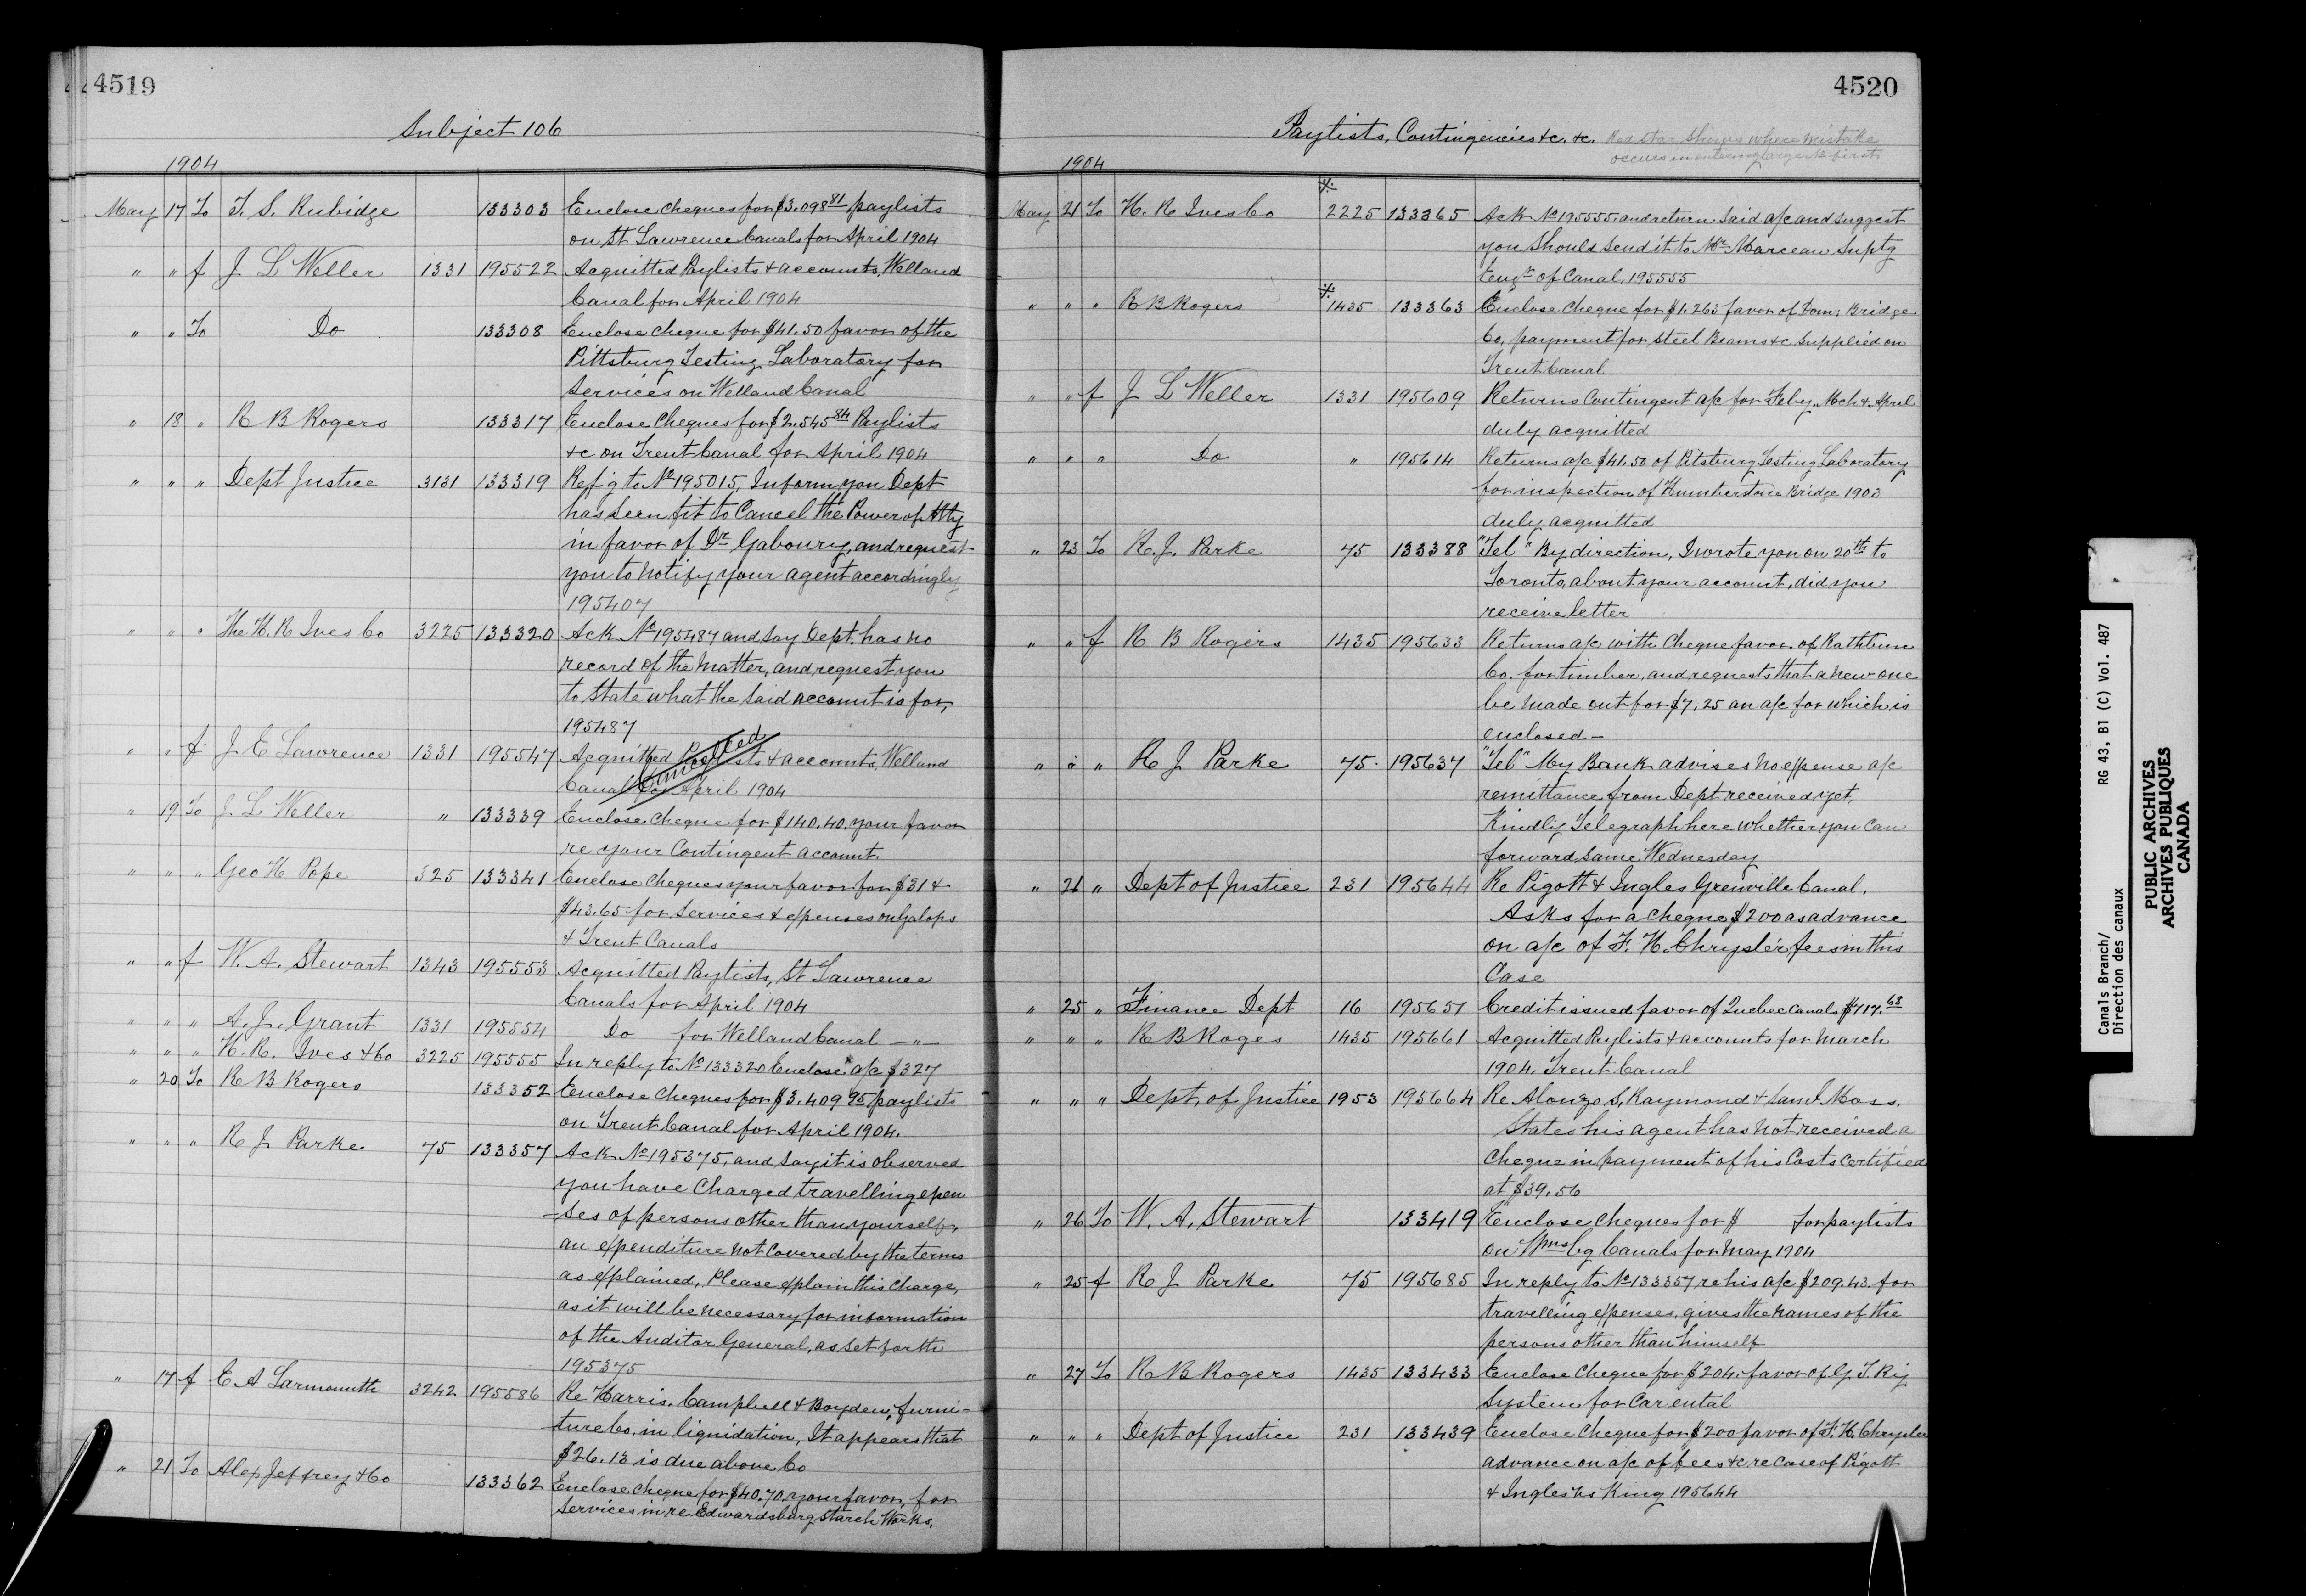 4519
Subject 106
1904
May 17 To T. S. Rubidge 133303 Enclose cheques for $3.098 81 paylists
on St Lawrence Canals for April 1904
" " f J L Weller 1331 195522 Acquitted Paylists & accounts, Welland
Canal for April 1904
" " To Do 133308 Enclose cheque for $41.50 favor of the
Pittsburg Testing Laboratory for
Services on Welland Canal
" 18 " R B Rogers 133317 Enclose Cheques for $2.545 84 Paylists
&c on Trent Canal for April 1904
" " " Dept Justice 3131 133319 Ref'g to No 195015, Inform you Dept
has seen fit to Cancel the Power of Atty
in favor of Dr Gaboury, and request
you to notify your agent accordingly
195407
" " " The H. R Ives Co 3225 133320 Ack No 195487 and say Dept. has no
record of the matter, and request you
to state what the said account is for,
195487
" " f J. E Lawrence 1331 195547 Acquitted Paylists & accounts, Welland
Canal for April 1904
Cancelled
" 19 To J. L Weller " 133339 Enclose Cheque for $140.40 your favor
re your Contingent account.
" " " Geo H Pope 325 133341 Enclose Cheques your favor for $31 &
$43.65 for services & expenses on Galops
& Trent Canals
" " f W. A. Stewart 1343 195553 Acquitted Paylists, St Lawrence
Canals for April 1904
" " " A. J. Grant 1331 195554 Do for Welland Canal — " —
" " " H. R. Ives & Co 3225 195555 In reply to No 133320 Enclose a/c $327
" 20 To R B Rogers 133352 Enclose cheques for $3.409 95 paylists
on Trent Canal for April 1904.
" " " R J Parke 75 133357 Ack No 195375, and say it is observed
you have Charged travelling expen
-ses of persons other than yourself,
an expenditure not covered by the terms
as explained, Please explain this charge,
as it will be necessary for information
of the Auditor General, as set forth
195375
" 17 f E A Larmonth 3242 195586 Re Harris. Campbell & Boyden, furni-
ture Co. in liquidation, It appears that
$26.13 is due above Co
" 21 To Alex Jeffrey & Co 133362 Enclose Cheque for $40.70. your favor, for
services in re Edwardsburg Starch Works.
4520
Paylists, Contingencies &c. &c. Red star shows where mistake
occurs in entering large No first
1904
May 21 To H. R Ives Co 2225 133365 Ack No 195555 and return said a/c and suggest
you should send it to Mr Marceau Suptg
Engr of Canal, 195555
" " " R B Rogers 1435 133363 Enclose Cheque for $1.263 favor of Domn Bridge
Co, payment for steel Beams &c supplied on
Trent Canal
" " f J L Weller 1331 195609 Returns Contingent a/c for Feby, Mch & April
duly acquitted
" " " Do " 195614 Returns a/c $41.50 of Pitsburg Testing Laboratory
for inspection of Humberstone Bridge 1903
duly acquitted
" 23 To R. J. Parke 75 133388 "Tel" By direction, I wrote you on 20th to
Toronto, about your account, did you
receive letter
" " f R B Rogers 1435 195633 Returns a/c with Cheque favor of Rathbun
Co. for timber, and requests that a new one
be made out for $7.25 an a/c for which is
enclosed —
" " " R J Parke 75. 195637 "Tel" My Bank advises no expense a/c
remittance from Dept received yet,
Kindly Telegraph here whether you can
forward same Wednesday
" 21 " Dept of Justice 231 195644 Re Pigott & Ingles Grenville Canal.
Asks for a cheque $200 as advance
on a/c of F. H. Chrysler fees in this
Case
" 25 " Finance Dept 16 195651 Credit issued favor of Quebec Canals $717.68
" " " R B Roges 1435 195661 Acquitted Paylists & accounts for March
1904. Trent Canal
" " " Dept. of Justice 1953 195664 Re Alonzo S, Raymond & Saml Moss.
States his agent has not received a
cheque in payment of his Costs certified
at $39.56
" 26 To W. A. Stewart 133419 Enclose cheques for $ for paylists
on Wmsbg Canals for May 1904
" 25 f R J Parke 75 195685 In reply to No 133357 re his a/c $209.43. for
travelling expenses, gives the names of the
persons other than himself
" 27 To R B Rogers 1435 133433 Enclose Cheque for $204. favor of G. T. Ry
System for Car ental
" " " Dept of Justice 231 133439 Enclose Cheque for $200 favor of F. H. Chrysler
advance on a/c of fees &c re Case of Pigott
& Ingles vs King 195644
Canals Branch/ RG 43, B1 (C) Vol. 487
Direction des canaux
PUBLIC ARCHIVES
ARCHIVES PUBLIQUES
CANADA